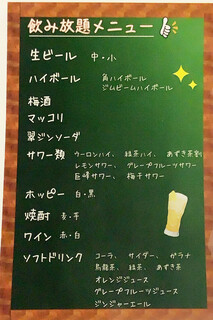 飲み放題メニュー
生ビール 中・小
ハイボール 角ハイボール
ジムビームハイボール
梅酒
マッコリ
翠ジンソーダ
サワー類 ウーロンハイ、緑茶ハイ、あずき茶割
レモンサワー、グレープフルーツサワー
巨峰サワー、梅干サワー
ホッピー 白・黒
焼酎 麦・芋
ワイン 赤・白
ソフトドリンク コーラ、サイダー、ガラナ
烏龍茶、緑茶、あずき茶
オレンジジュース
グレープフルーツジュース
ジンジャーエール